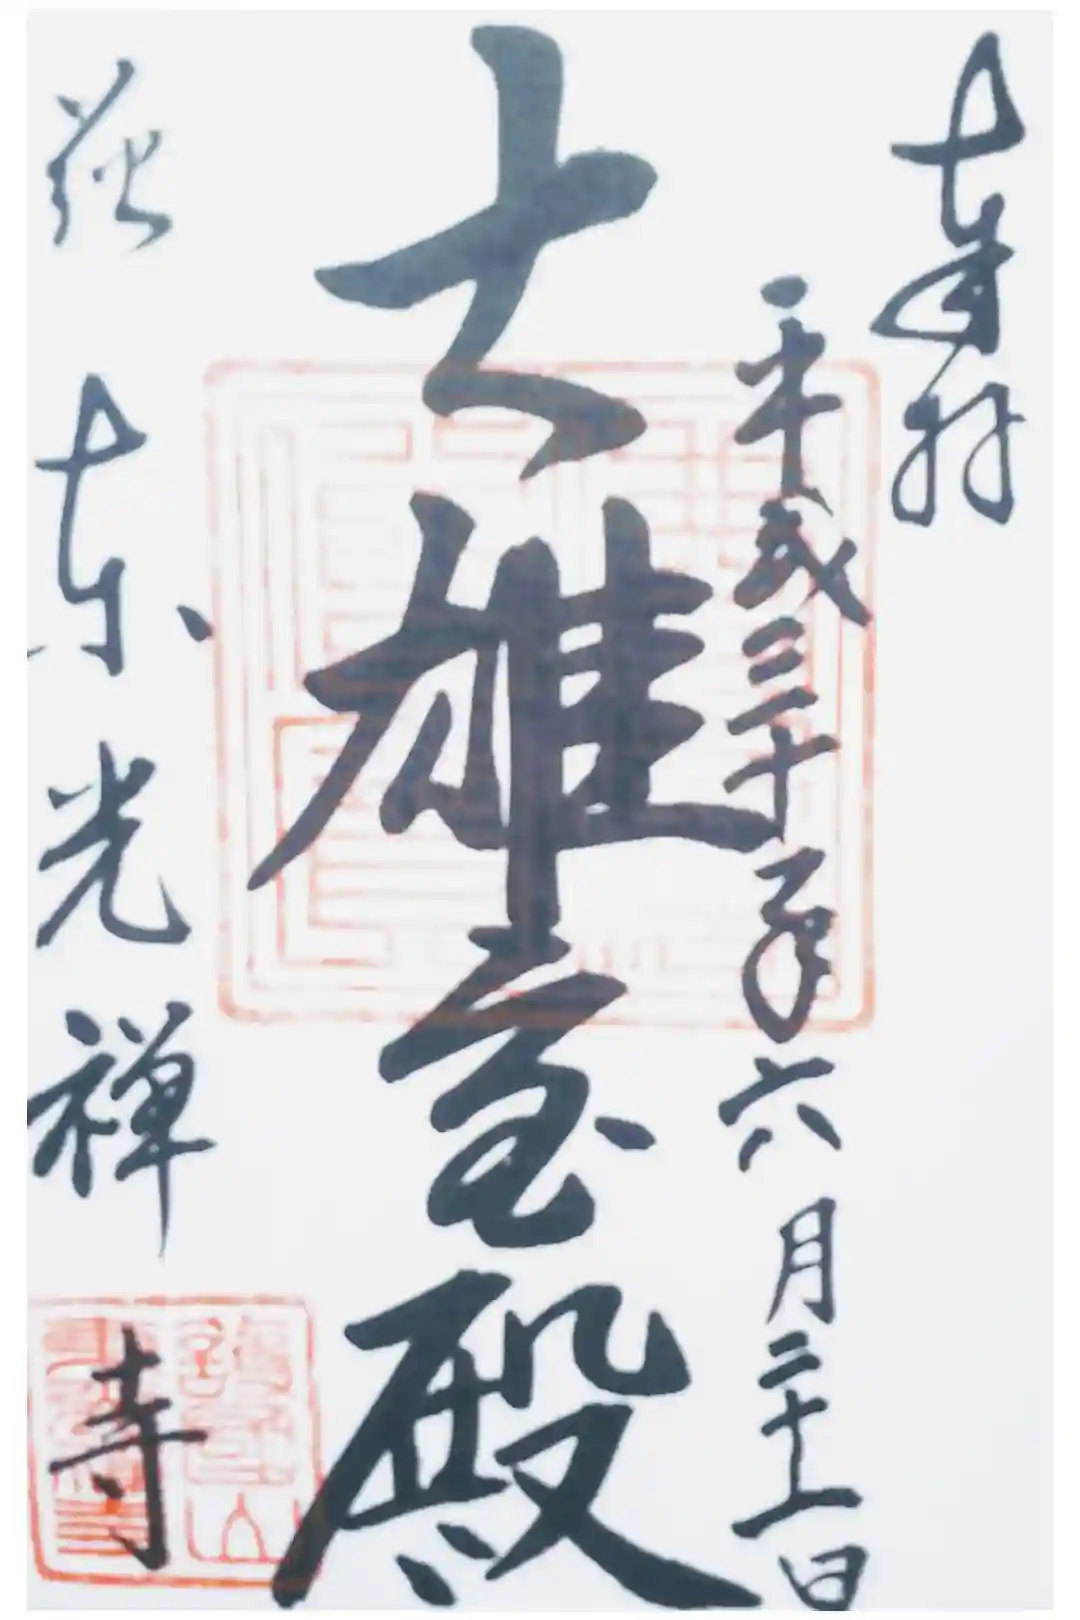 奉拝
平成三十年六月二十一日
大雄宝殿
萩 東光禅寺